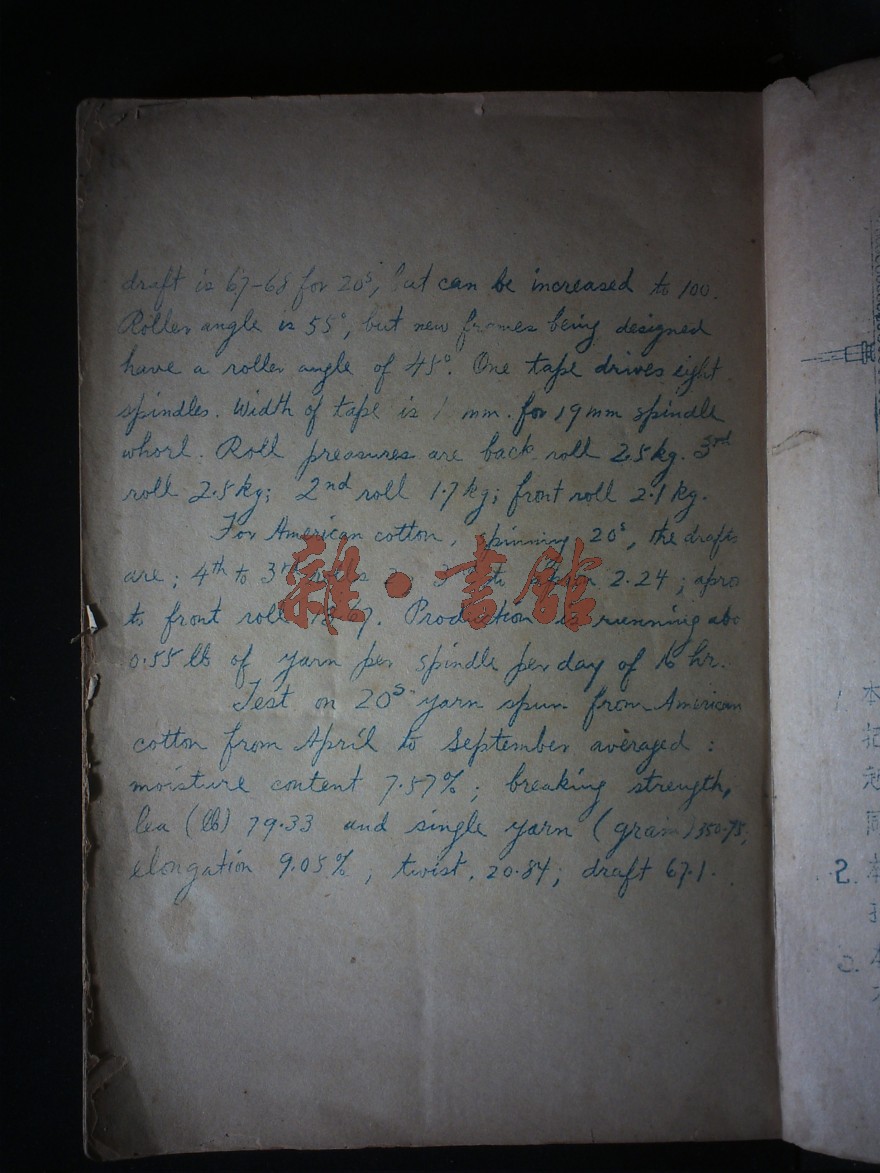 draft is 67-68 for 20s, but can be increased to 100.
Roller angle is 55°, but new frames being designed
have a roller angle of 45°. One tape drives eight
spindles. Width of tape is mm. for 19 mm spindle
whorl. Roll preasures are back roll 2.5 kg. 3rd
roll 2.5 kg; 2nd roll 1.7 kg; front roll 2.1 kg.
For American cotton, spinning 20s, the drafts
are; 4th to 3rd 2.24; apro
to front roll Production is running abo
0.55 lb of yarn per spindle per day of 16 hr.
Test on 20s yarn spun from American
cotton from April to September averaged:
moisture content 7.57%; breaking strength,
lea (lb) 79.33 and single yarn (gram) 350.75;
elongation 9.05%, twist, 20.84; draft 67.1.
雜·書館
本
2.
本